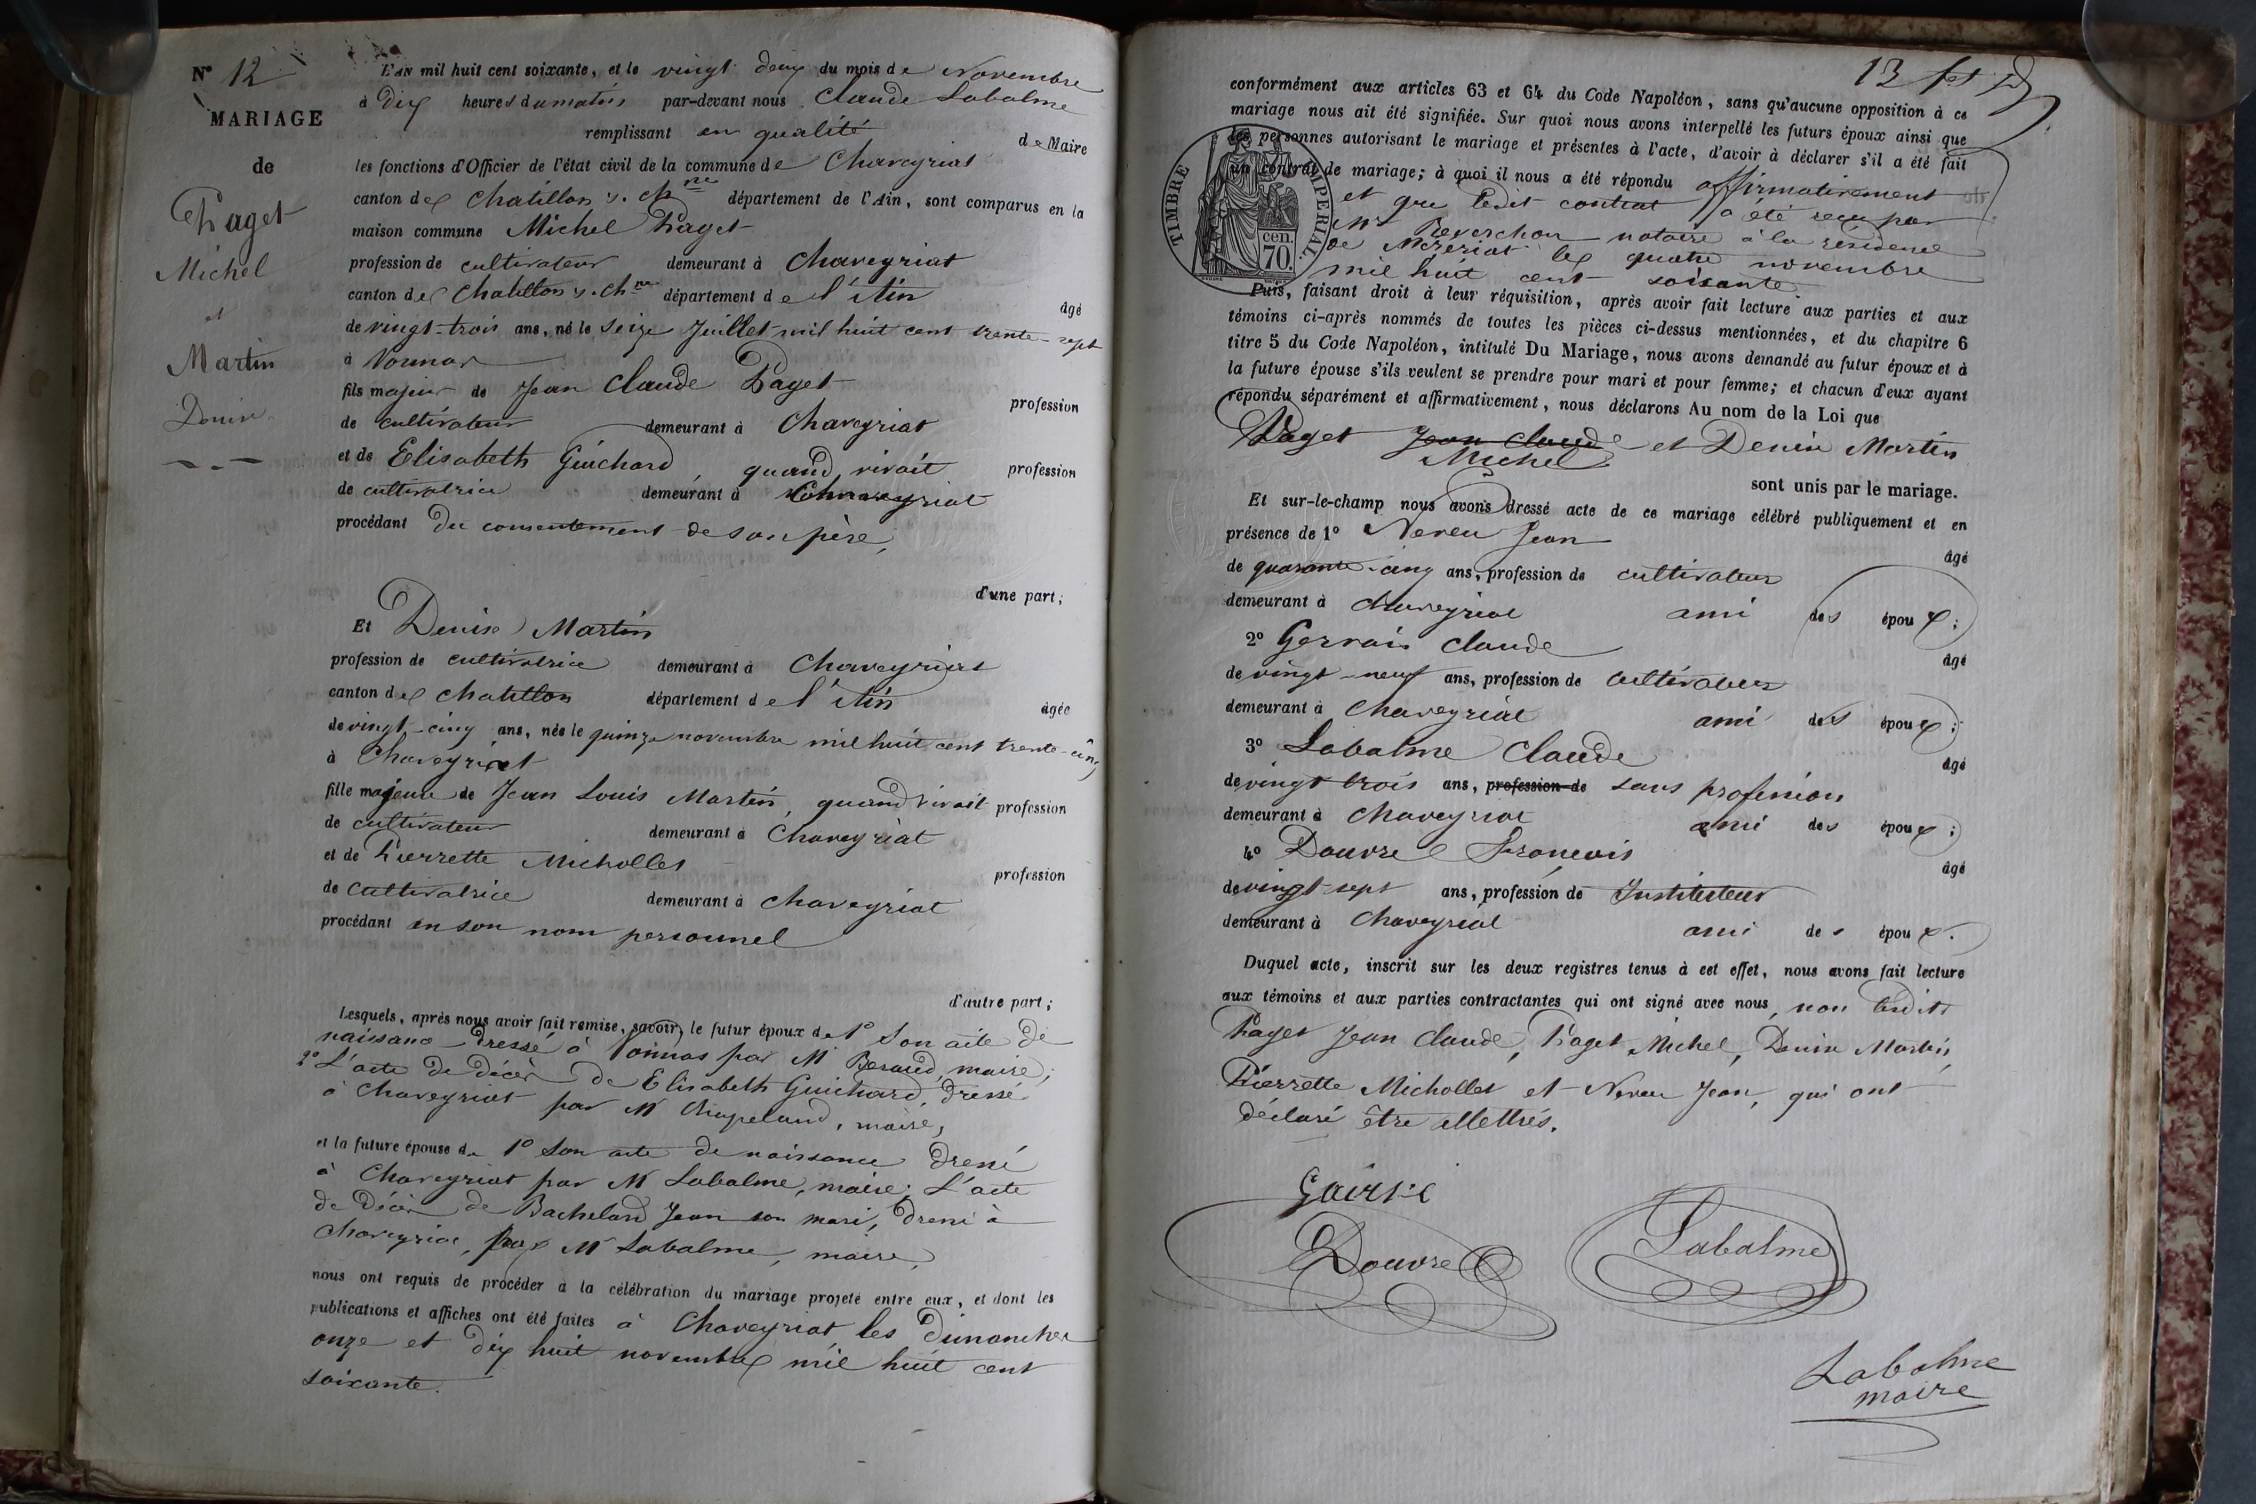 N° 12
MARIAGE
de
Paget
Michel
et
Martin
Denise
L'AN mil huit cent soixante, et le vingt deux du mois de Novembre
à dix heures du matin par-devant nous Claude Labalme
remplissant en qualité de Maire
les fonctions d'Officier de l'état civil de la commune de Chaveyriat
canton de Chatillon s. Ch.ne département de l'Ain, sont comparus en la
maison commune Michel Paget
profession de cultivateur demeurant à Chaveyriat
canton de Chatillon s. Ch.ne département de l'Ain âgé
de vingt-trois ans, né le seize Juillet mil huit cent trente-sept
à Vonnas
fils majeur de Jean Claude Paget profession
de cultivateur demeurant à Chaveyriat
et de Elisabeth Guichard, quand vivait profession
de cultivatrice demeurant à Chaveyriat
procédant du consentement de son père,
d'une part;
Et Denise Martin
profession de cultivatrice demeurant à Chaveyriat
canton de Chatillon département de l'Ain âgée
de vingt-cinq ans, née le quinze novembre mil huit cent trente-cinq
à Chaveyriat
fille majeure de Jean Louis Martin, quand vivait profession
de cultivateur demeurant à Chaveyriat
et de Pierrette Michollet profession
de cultivatrice demeurant à Chaveyriat
procédant en son nom personnel
d'autre part;
Lesquels, après nous avoir fait remise, savoir, le futur époux de 1° Son acte de
naissance dressé à Vonnas par M Beraud, maire;
2° L'acte de décès de Elisabeth Guichard, dressé
à Chaveyriat par M Chapeland, maire,
et la future épouse de 1° Son acte de naissance dressé
à Chaveyriat par M Labalme, maire; L'acte
de décès de Bachelard Jean son mari, dressé à
Chaveyriat, par M Labalme, maire,
nous ont requis de procéder à la célébration du mariage projeté entre eux, et dont les
publications et affiches ont été faites à Chaveyriat les Dimanches
onze et dix huit novembre mil huit cent
soixante.
13
conformément aux articles 63 et 64 du Code Napoléon, sans qu'aucune opposition à ce
mariage nous ait été signifiée. Sur quoi nous avons interpellé les futurs époux ainsi que
les personnes autorisant le mariage et présentes à l'acte, d'avoir à déclarer s'il a été fait
un contrat de mariage; à quoi il nous a été répondu affirmativement
et que ledit contrat a été reçu par
Me Reverchon notaire à la résidence
de Mézériat le quatre novembre
mil huit cent soixante.
TIMBRE IMPERIAL.
cen.
70.
Puis, faisant droit à leur réquisition, après avoir fait lecture aux parties et aux
témoins ci-après nommés de toutes les pièces ci-dessus mentionnées, et du chapitre 6
titre 5 du Code Napoléon, intitulé Du Mariage, nous avons demandé au futur époux et à
la future épouse s'ils veulent se prendre pour mari et pour femme; et chacun d'eux ayant
répondu séparément et affirmativement, nous déclarons Au nom de la Loi que
Paget Jean Claude et Denise Martin
Michel
sont unis par le mariage.
Et sur-le-champ nous avons dressé acte de ce mariage célébré publiquement et en
présence de 1° Neveu Jean âgé
de quarante-cinq ans, profession de cultivateur
demeurant à Chaveyriat ami des époux;
2° Gervais Claude âgé
de vingt-neuf ans, profession de cultivateur
demeurant à Chaveyriat ami des époux;
3° Labalme Claude âgé
de vingt trois ans, profession de sans profession
demeurant à Chaveyriat ami des époux;
4° Douvre François âgé
de vingt-sept ans, profession de Instituteur
demeurant à Chaveyriat ami des époux.
Duquel acte, inscrit sur les deux registres tenus à cet effet, nous avons fait lecture
aux témoins et aux parties contractantes qui ont signé avec nous, non lesdits
Paget Jean Claude, Paget Michel, Denise Martin,
Pierrette Michollet et Neveu Jean, qui ont
déclaré être illettrés.
Douvre
Labalme
Labalme
maire